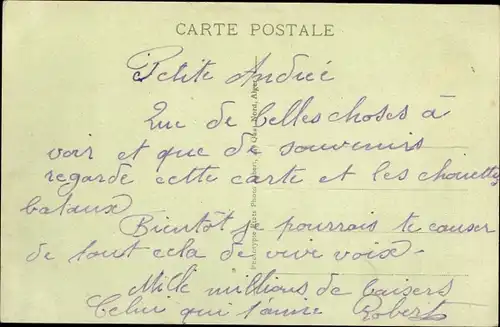 CARTE POSTALE
Petite Andrée
Que de belles choses à
voir et que de souvenirs
regarde cette carte et les chouettes
bataux
Bientôt je pourrais te causer
de tout cela de vive voix.
Mille millions de baisers
Celui qui t'aime Robert
Phototypie Photo Albert, Quai Nord, Alger